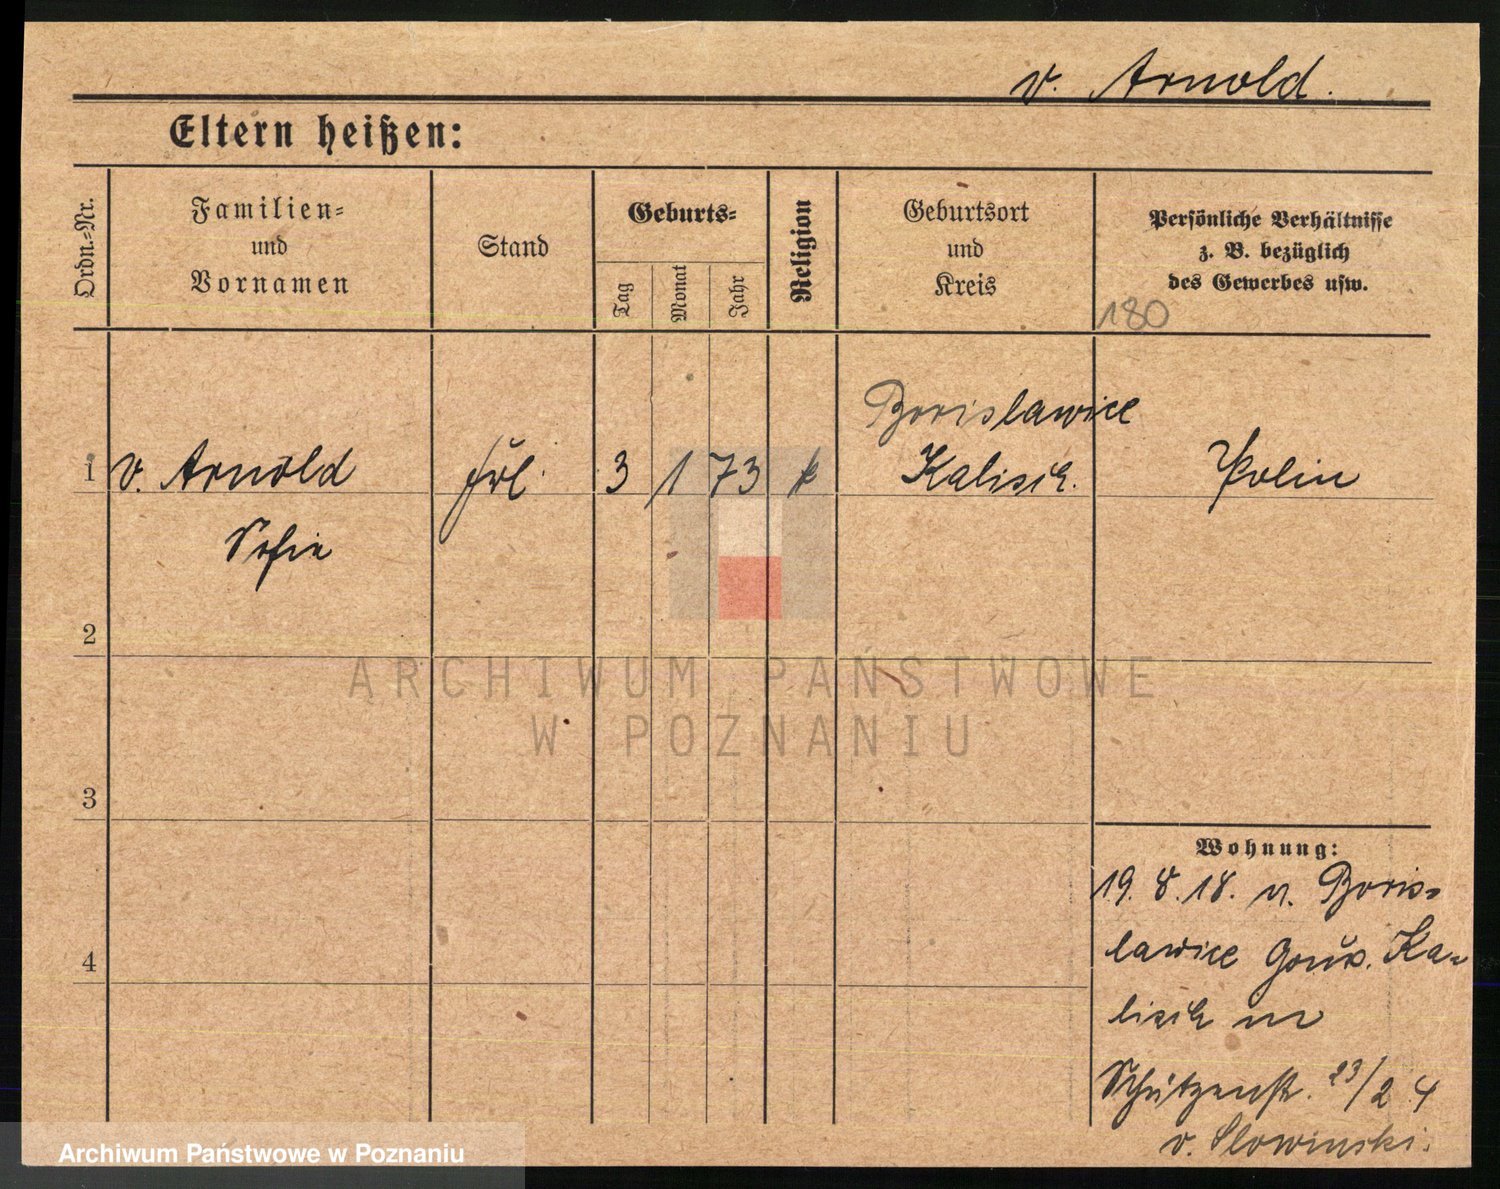 v. Arnold.
Eltern heißen:
Ordn.=Nr.
Familien=
und
Vornamen
Stand
Geburts=
Tag
Monat
Jahr
Religion
Geburtsort
und
Kreis
Persönliche Verhältnisse
z. B. bezüglich
des Gewerbes usw.
180
1 v. Arnold Frl. 3 1 73 k Borislawice
Kalisch. Polin
Sofie
2
3
4
Wohnung:
19. 8. 18. v. Boris=
lawice Gouv. Ka=
lisch
Schützenstr. 23/24
v. Slowinski.
ARCHIWUM PAŃSTWOWE
W POZNANIU
Archiwum Państwowe w Poznaniu